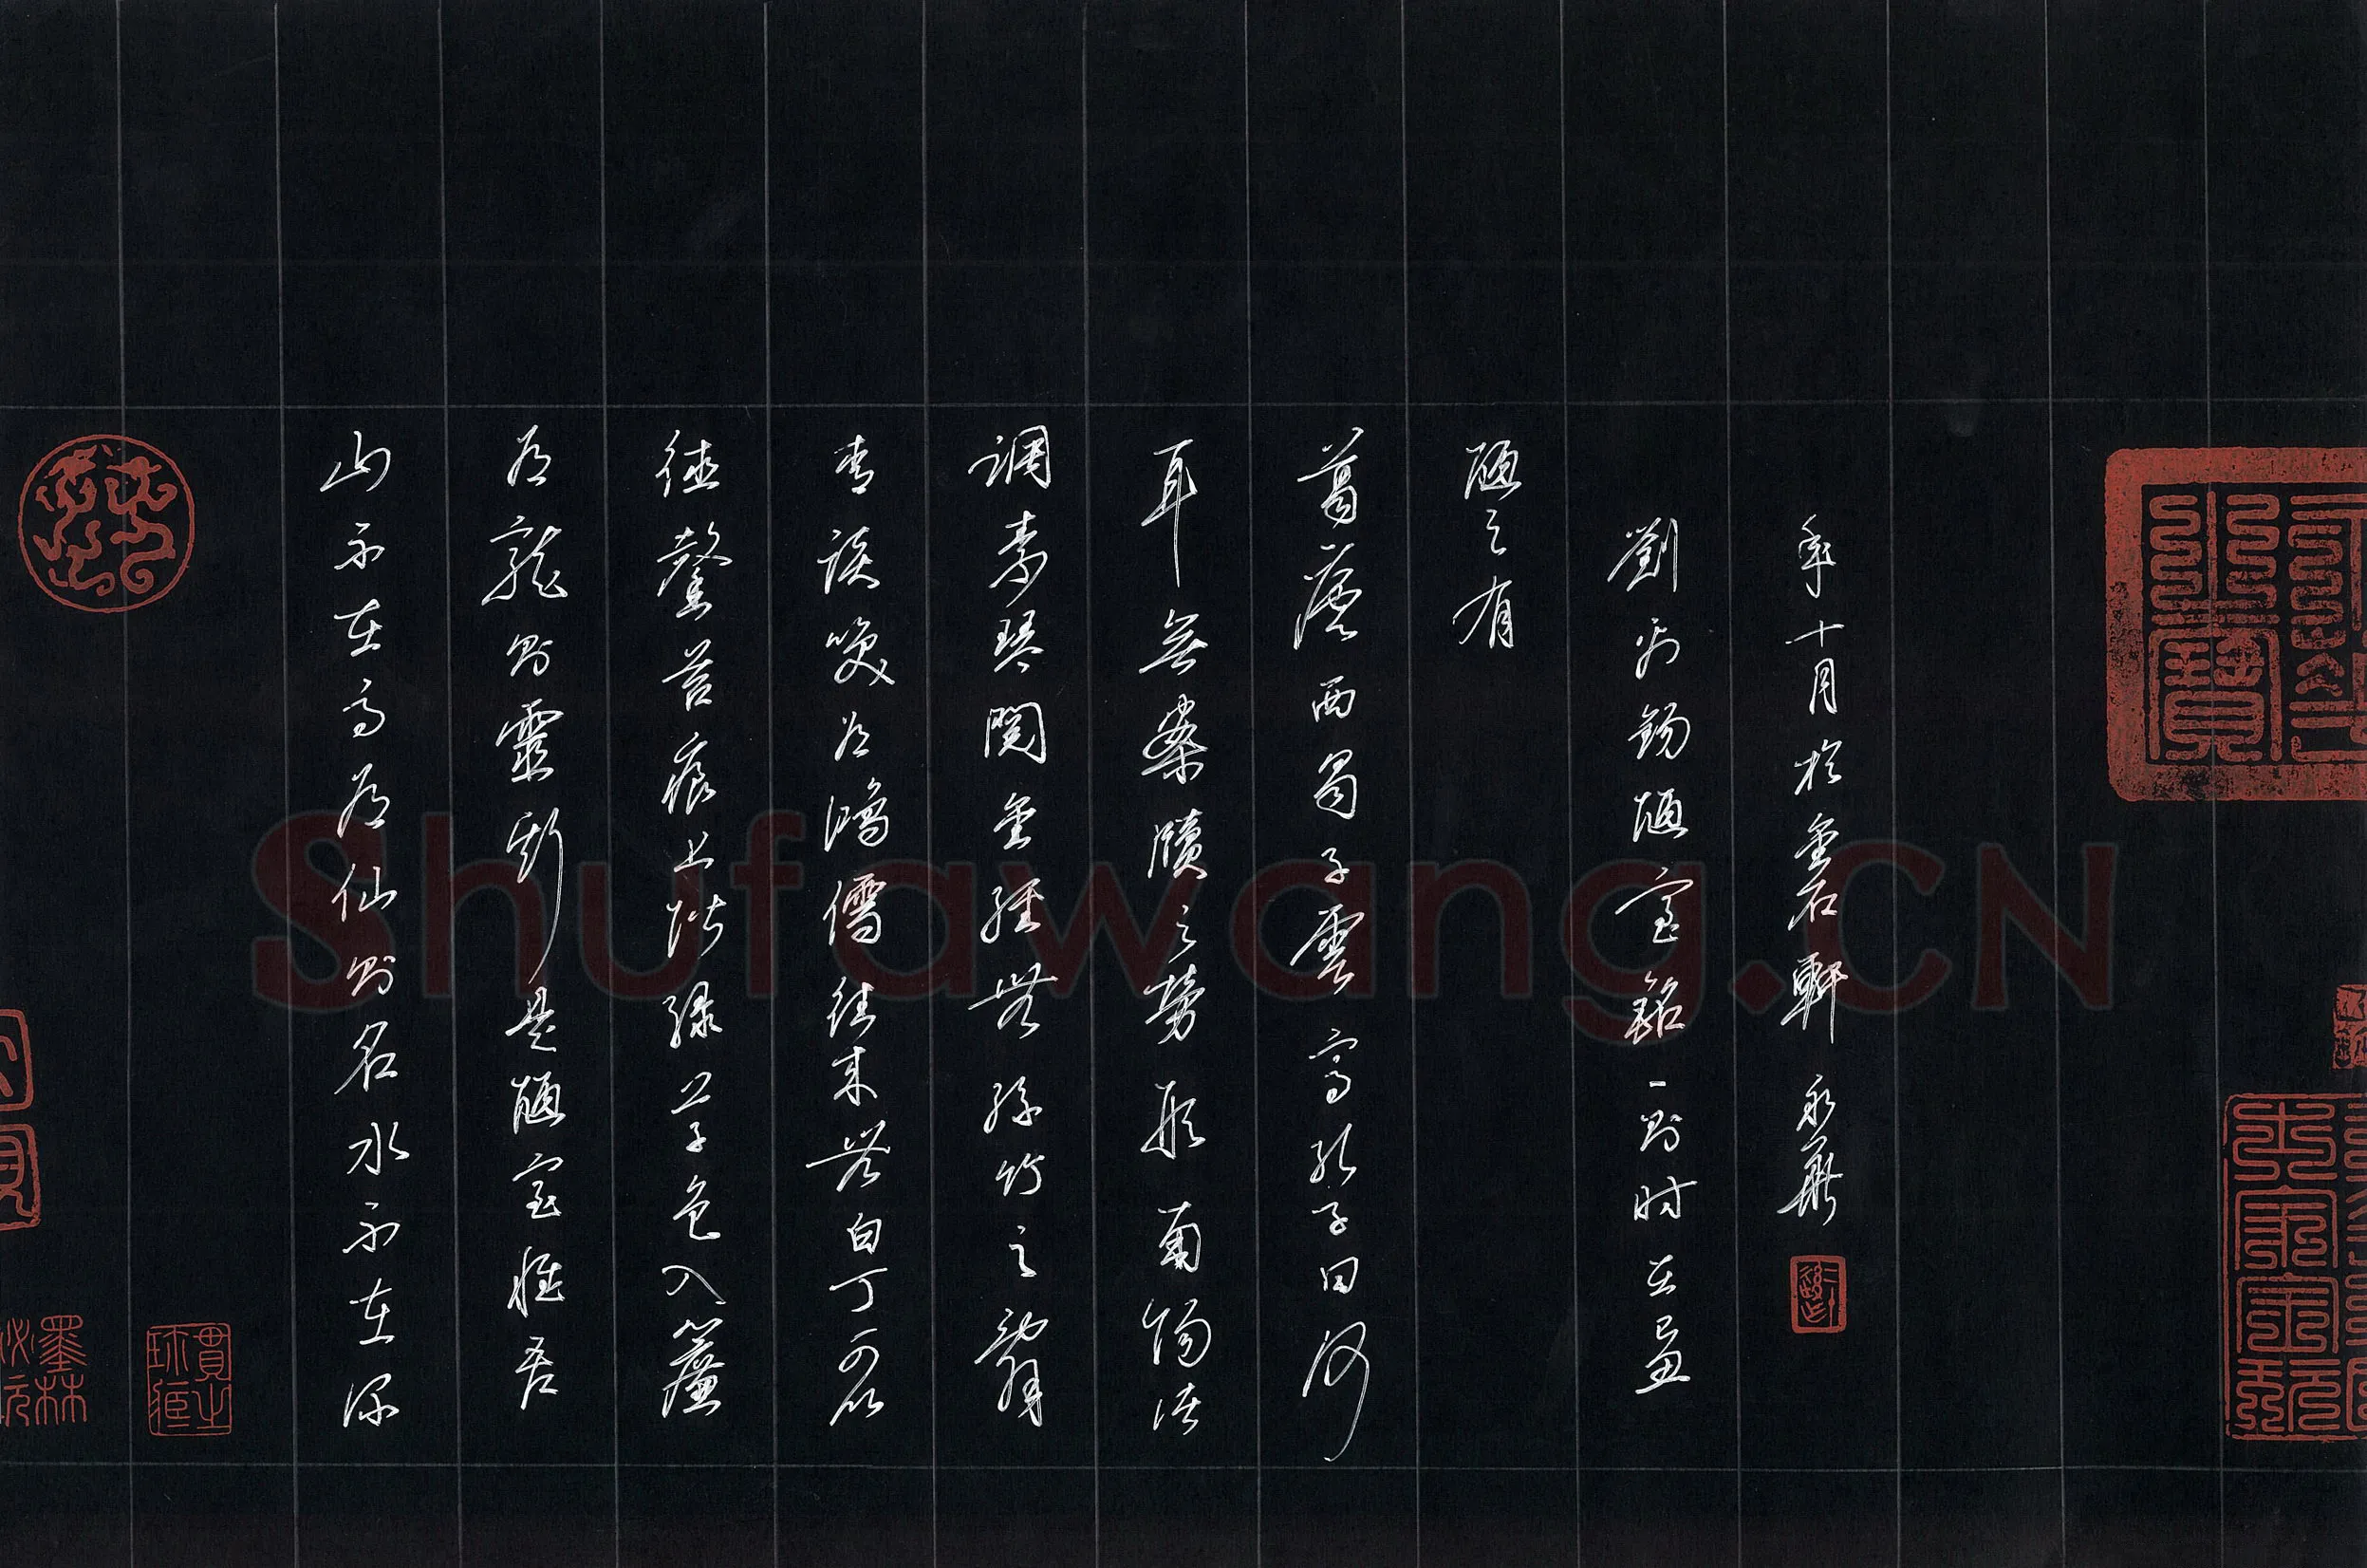 山不在高有仙則名水不在深
有龍則靈斯是陋室惟吾
德馨苔痕上階緑草色入簾
青談笑有鴻儒往來無白丁可以
調素琴閱金經無絲竹之亂
耳無案牘之勞形南陽諸
葛廬西蜀子雲亭孔子曰何
陋之有
劉禹錫陋室銘一則时在己丑
年十月於金石軒 永
Shufawang.CN
墨林